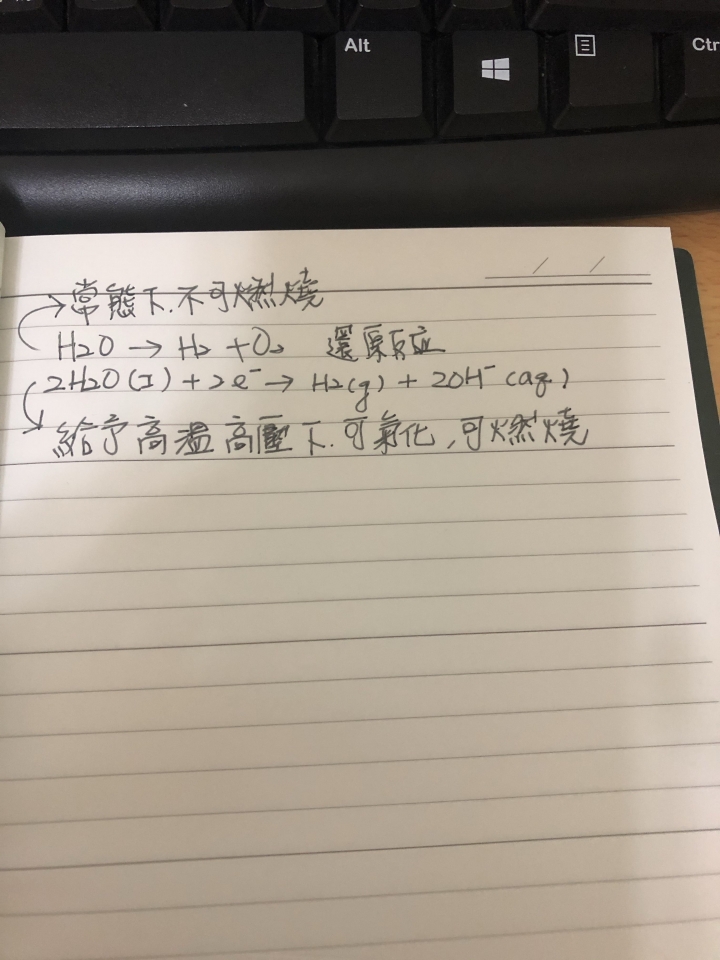 Alt
Ctr
常態下.不可燃燒
H2O → H2 + O2 還原反应
2H2O(I) + 2e⁻ → H2(g) + 2OH⁻(aq)
給予高溫高壓下.可氣化,可燃燒